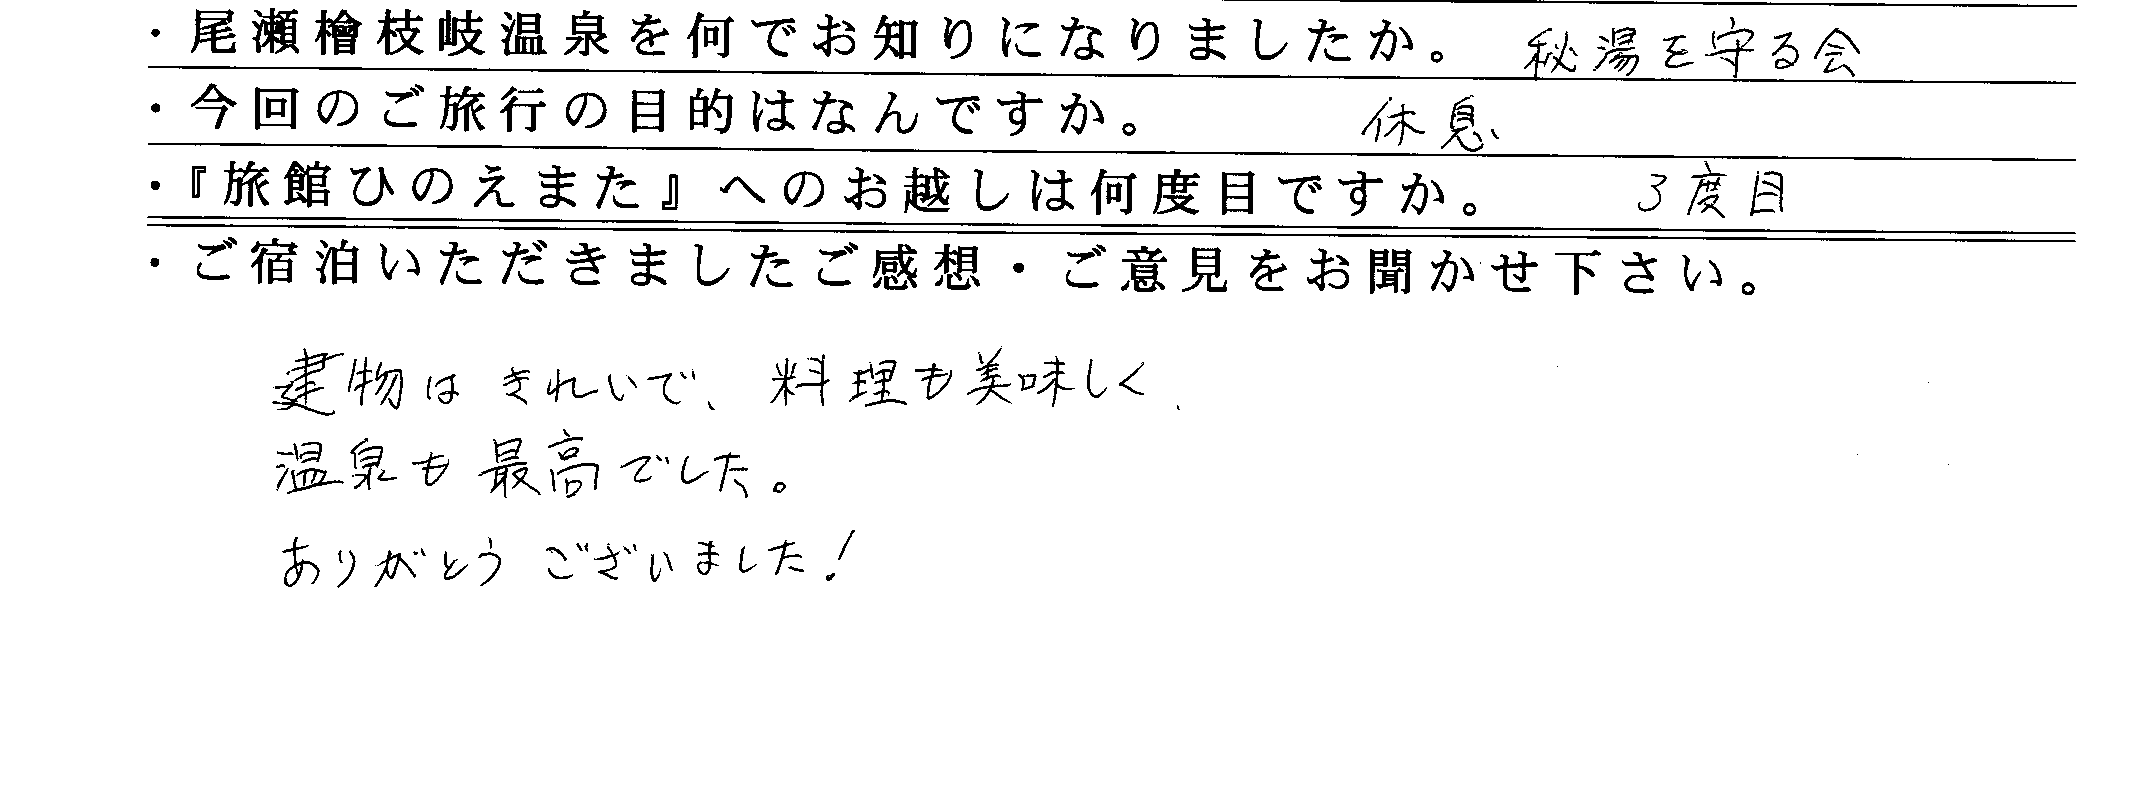 ・尾瀬檜枝岐温泉を何でお知りになりましたか。 秘湯を守る会
・今回のご旅行の目的はなんですか。 休息
・『旅館ひのえまた』へのお越しは何度目ですか。 3度目
・ご宿泊いただきましたご感想・ご意見をお聞かせ下さい。
建物は きれいで、料理も美味しく、
温泉も最高でした。
ありがとう ございました!